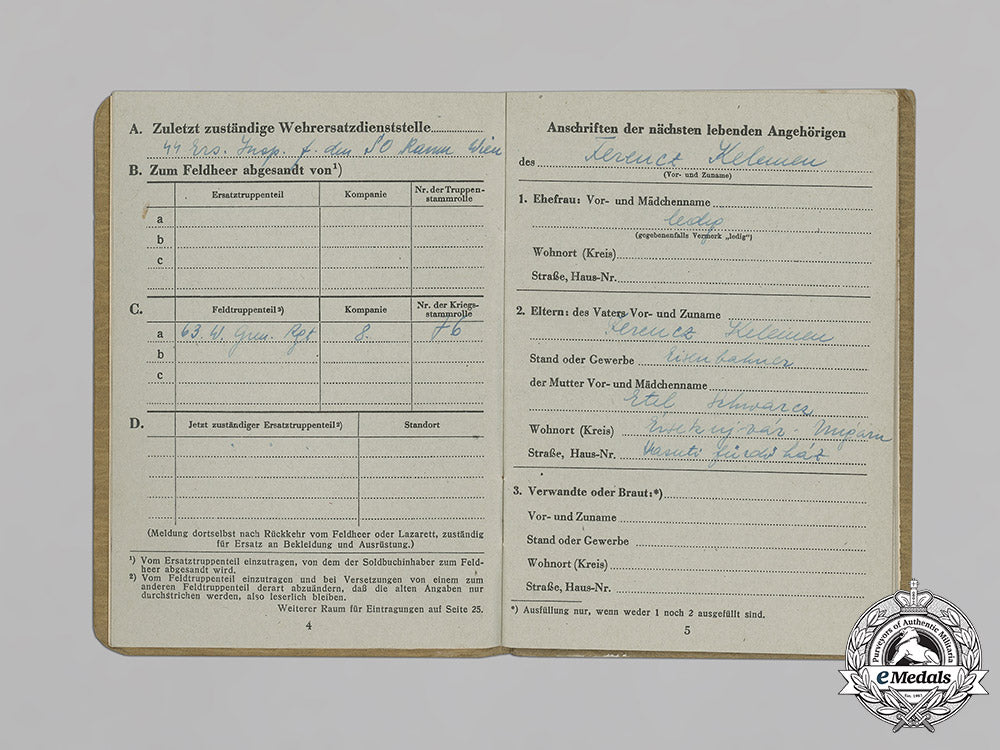 A. Zuletzt zuständige Wehrersatzdienststelle
44 Ers. Insp. f. den SO Raum Wien
B. Zum Feldheer abgesandt von¹)
Ersatztruppenteil Kompanie Nr. der Truppen-
stammrolle
a
b
c
C. Feldtruppenteil²) Kompanie Nr. der Kriegs-
stammrolle
a 63. W. Gren. Rgt 8. 76
b
c
D. Jetzt zuständiger Ersatztruppenteil²) Standort
(Meldung dortselbst nach Rückkehr vom Feldheer oder Lazarett, zuständig
für Ersatz an Bekleidung und Ausrüstung.)
¹) Vom Ersatztruppenteil einzutragen, von dem der Soldbuchinhaber zum Feld-
heer abgesandt wird.
²) Vom Feldtruppenteil einzutragen und bei Versetzungen von einem zum
anderen Feldtruppenteil derart abzuändern, daß die alten Angaben nur
durchstrichen werden, also leserlich bleiben.
Weiterer Raum für Eintragungen auf Seite 25.
4
Anschriften der nächsten lebenden Angehörigen
des Ferencz Kelemen
(Vor- und Zuname)
1. Ehefrau: Vor- und Mädchenname
ledig
(gegebenenfalls Vermerk „ledig")
Wohnort (Kreis)
Straße, Haus-Nr.
2. Eltern: des Vaters Vor- und Zuname
Ferencz Kelemen
Stand oder Gewerbe Eisenbahner
der Mutter Vor- und Mädchenname
Etel Schwarcz
Wohnort (Kreis) Ersekujvár - Ungarn
Straße, Haus-Nr. Vasuti fürdö ház
3. Verwandte oder Braut:*)
Vor- und Zuname
Stand oder Gewerbe
Wohnort (Kreis)
Straße, Haus-Nr.
*) Ausfüllung nur, wenn weder 1 noch 2 ausgefüllt sind.
5
Purveyors of Authentic Militaria
eMedals